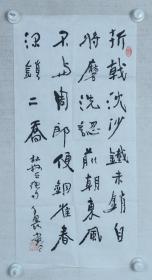 折戟沈沙鐵未銷自
將磨洗認前朝東風
不與周郎便銅雀春
深鎖二喬 杜牧